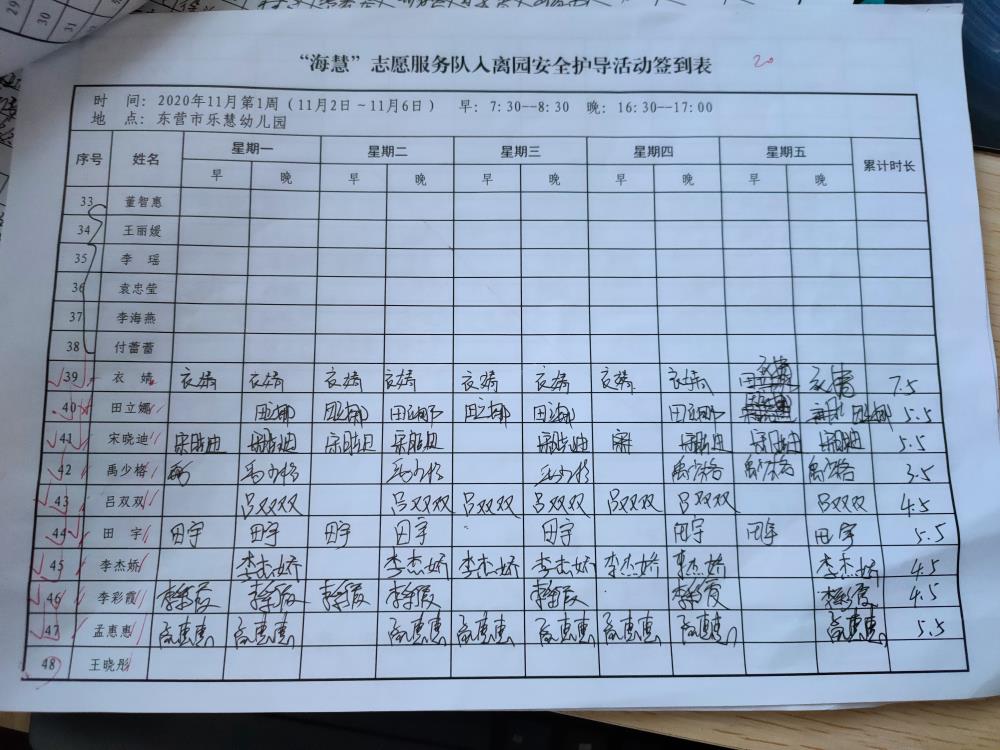 “海慧”志愿服务队入离园安全护导活动签到表 20
时 间：2020年11月第1周（11月2日～11月6日） 早：7:30--8:30 晚：16:30--17:00
地 点：东营市乐慧幼儿园
序号 姓名 星期一 星期二 星期三 星期四 星期五 累计时长
早 晚 早 晚 早 晚 早 晚 早 晚
33 董智惠
34 王丽媛
35 李 瑶
36 袁忠莹
37 李海燕
38 付蕾蕾
39 衣 婧 衣婧 衣婧 衣婧 衣婧 衣婧 衣婧 衣婧 衣婧 衣婧 衣婧 7.5
40 田立娜 田立娜 田立娜 田立娜 田立娜 田立娜 田立娜 田立娜 5.5
41 宋晓迪 宋晓迪 宋晓迪 宋晓迪 宋晓迪 宋晓迪 宋 宋晓迪 宋晓迪 宋晓迪 5.5
42 禹少榕 禹少榕 禹少榕 禹少榕 禹少榕 禹少榕 禹少榕 3.5
43 吕双双 吕双双 吕双双 吕双双 吕双双 吕双双 吕双双 吕双双 4.5
44 田 宇 田宇 田宇 田宇 田宇 田宇 田宇 田宇 田宇 5.5
45 李杰娇 李杰娇 李杰娇 李杰娇 李杰娇 李杰娇 李杰娇 李杰娇 4.5
46 李彩霞 李彩霞 李彩霞 李彩霞 李彩霞 李彩霞 李彩霞 李彩霞 4.5
47 孟惠惠 孟惠惠 孟惠惠 孟惠惠 孟惠惠 孟惠惠 孟惠惠 孟惠惠 孟惠惠 5.5
48 王晓彤